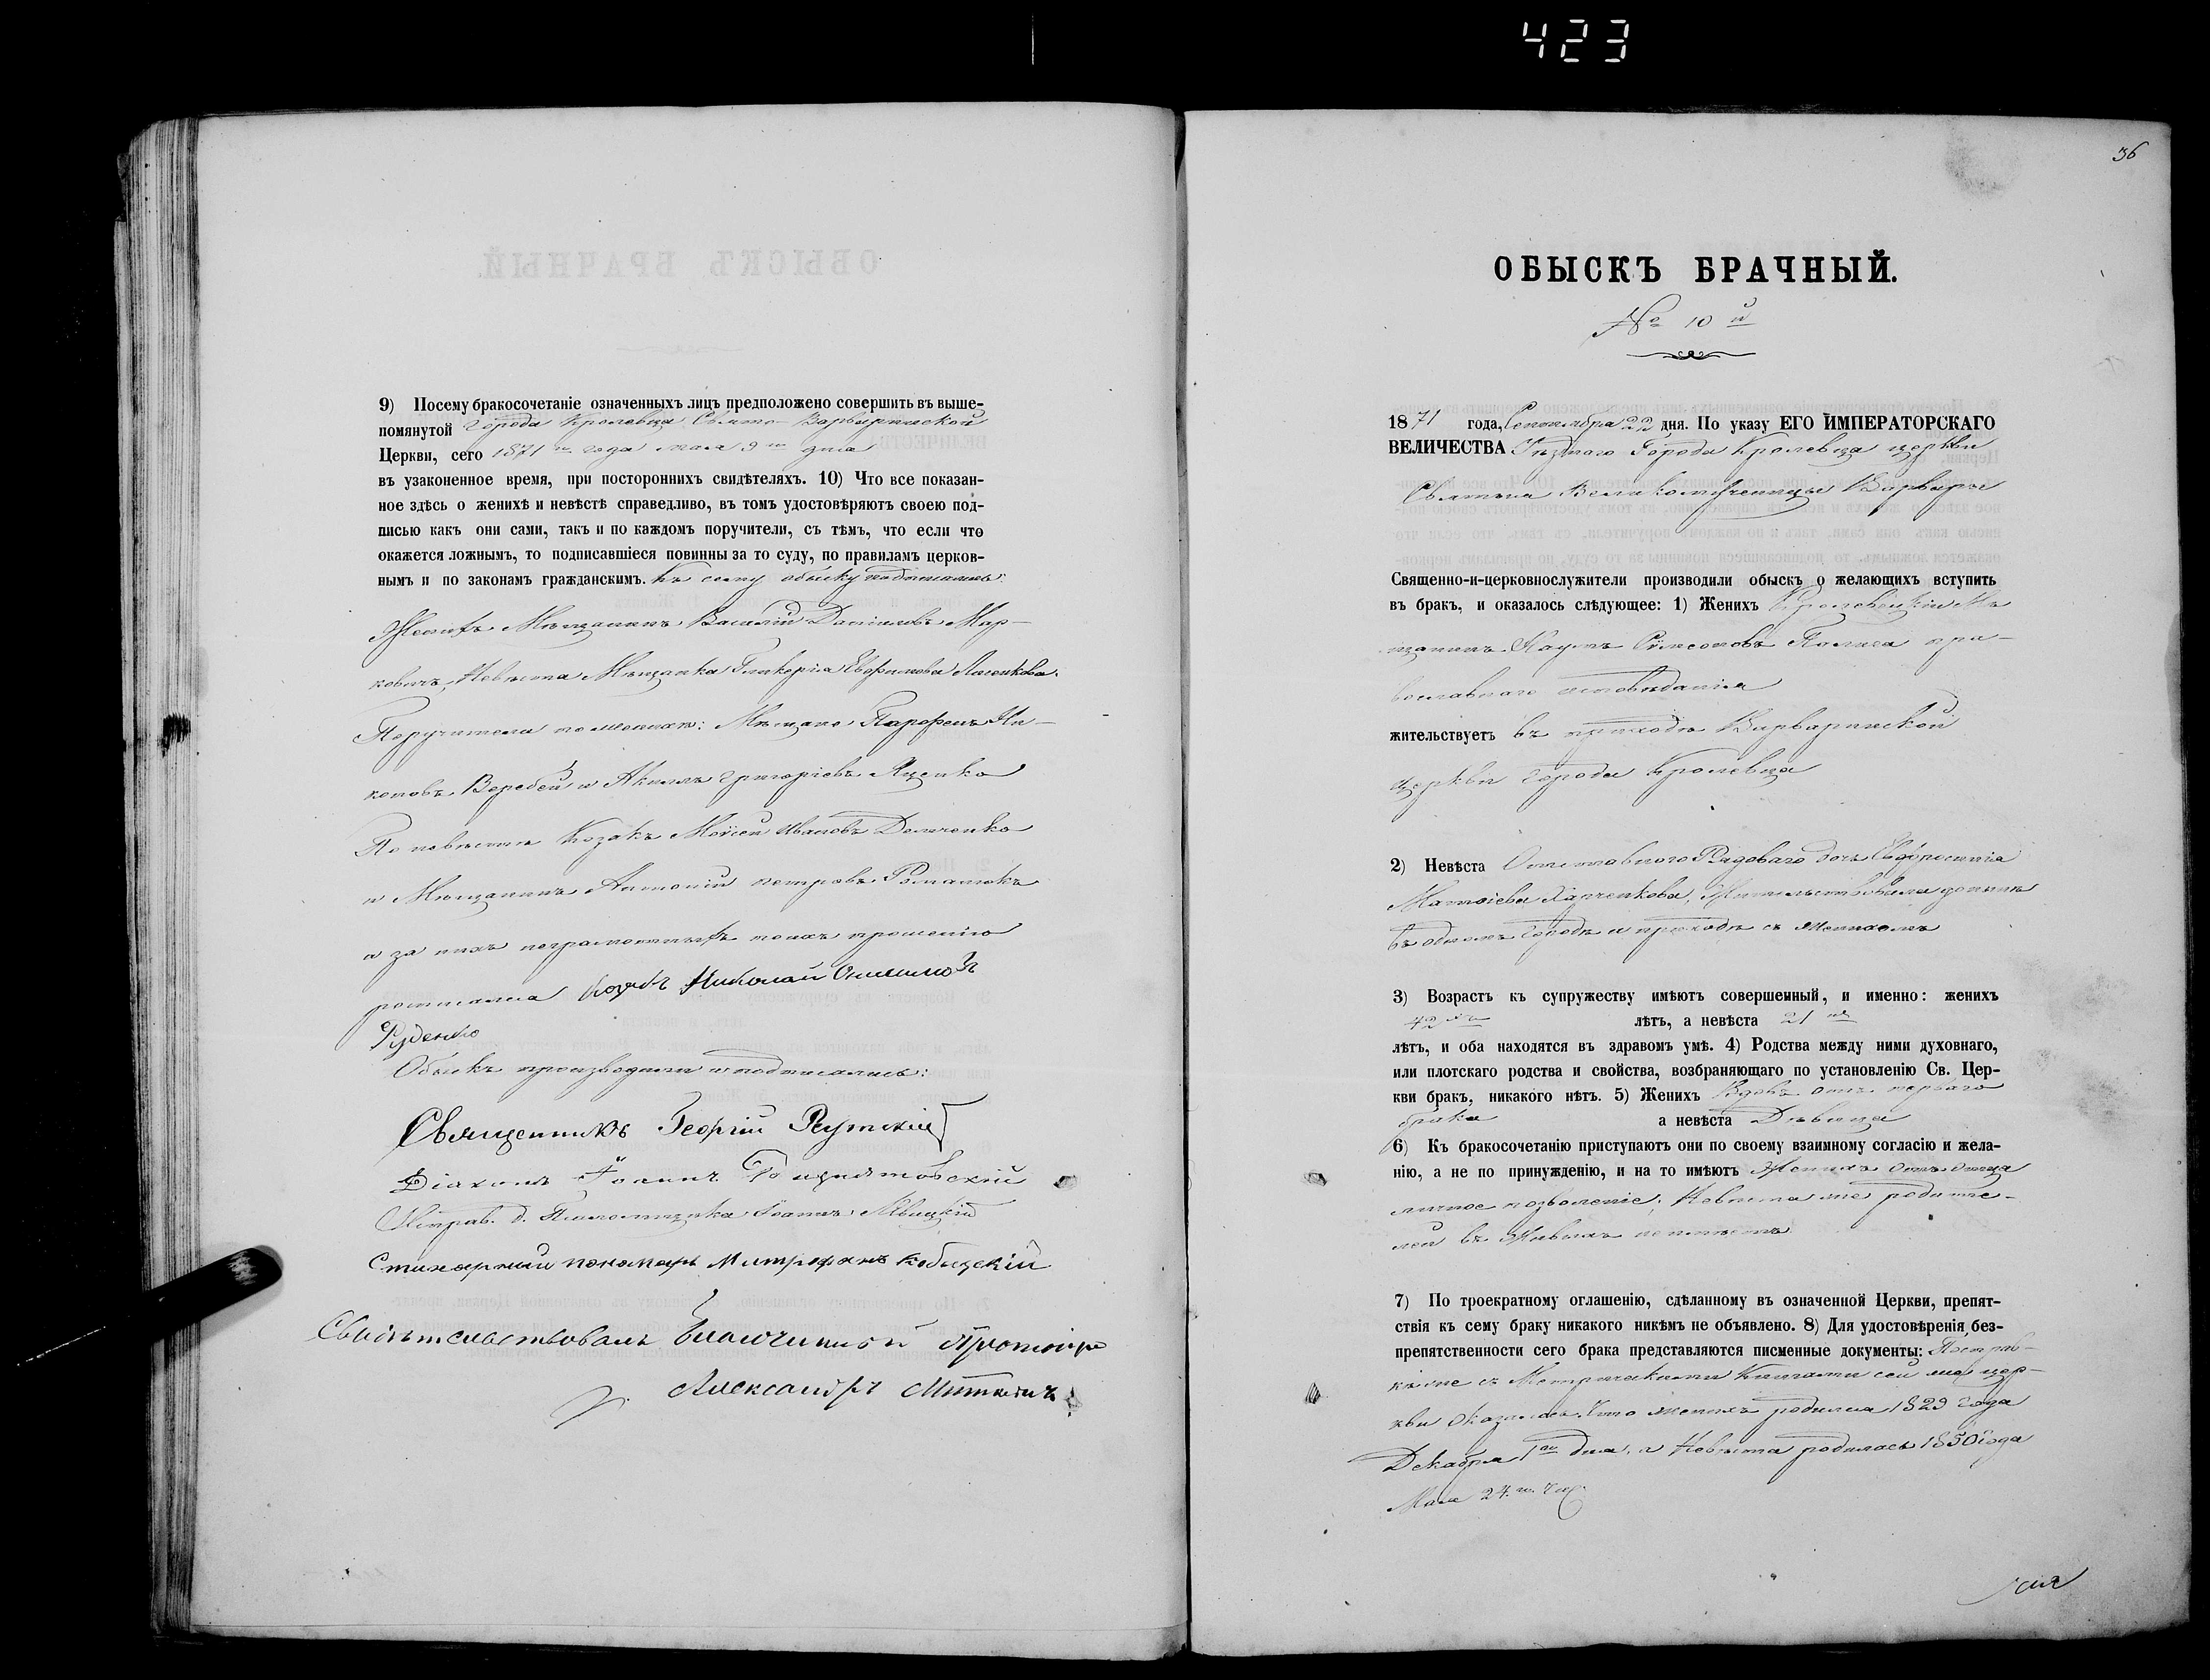 423
9) Посему бракосочетаніе означенныхъ лицъ предположено совершить въ выше-
помянутой города Кролевца Свято-Варваринской
Церкви, сего 1871 го года мая 9 го дня
въ узаконенное время, при постороннихъ свидѣтеляхъ. 10) Что все показан-
ное здѣсь о женихѣ и невѣстѣ справедливо, въ томъ удостовѣряютъ своею под-
писью какъ они сами, такъ и по каждомъ поручители, съ тѣмъ, что если что
окажется ложнымъ, то подписавшіеся повинны за то суду, по правиламъ церков-
нымъ и по законамъ гражданскимъ. Къ сему обыску подписались:
Женихъ Мѣщанинъ Василій Даниловъ Мар-
ковичъ, Невѣста Мѣщанка Гликерія Евфимова
Поручители по женихѣ: Мѣщане Парфенъ Ни-
коновъ Воробей и Акимъ Григоріевъ Яценко
По невѣстѣ Козакъ Мойсей Ивановъ Демченко
и Мѣщанинъ Антоній Петровъ Романюкъ
а за нихъ неграмотныхъ по ихъ прошенію
росписался Козакъ Николай Онисимовъ
Руденко
Обыскъ производили и подписались:
Священникъ Георгій Рутскій
Діаконъ Іоаннъ
Исправ. д. Псаломщика Іоаннъ
Стихарный пономарь Митрофанъ Кобыцкій
Свидѣтельствовалъ Благочинный Протоіерей
Александръ
36
ОБЫСКЪ БРАЧНЫЙ.
№ 10 й
1871 года, Сентября 22 дня. По указу ЕГО ИМПЕРАТОРСКАГО
ВЕЛИЧЕСТВА Уѣзднаго Города Кролевца церкви
Святыя Великомученицы Варвары
Священно-и-церковнослужители производили обыскъ о желающихъ вступить
въ бракъ, и оказалось слѣдующее: 1) Женихъ Кролевецкій Мѣ-
щанинъ Наумъ Сѵмеоновъ пра-
вославнаго исповѣданія
жительствуетъ въ приходѣ Варваринской
церкви города Кролевца
2) Невѣста Отставного Рядоваго дочь Евфросинія
Матѳіева Харченкова, Жительствовала донынѣ
въ одномъ городѣ и приходѣ съ женихомъ
3) Возрастъ къ супружеству имѣютъ совершенный, и именно: женихъ
42 хъ лѣтъ, а невѣста 21 го
лѣтъ, и оба находятся въ здравомъ умѣ. 4) Родства между ними духовнаго,
или плотскаго родства и свойства, возбраняющаго по установленію Св. Цер-
кви бракъ, никакого нѣтъ. 5) Женихъ Вдовъ отъ перваго
брака а невѣста Дѣвица
6) Къ бракосочетанію приступаютъ они по своему взаимному согласію и жела-
нію, а не по принужденію, и на то имѣютъ Женихъ отъ отца
личное позволеніе; Невѣста же родите-
лей въ живыхъ не имѣетъ
7) По троекратному оглашенію, сдѣланному въ означенной Церкви, препят-
ствія къ сему браку никакого никѣмъ не объявлено. 8) Для удостовѣренія без-
препятственности сего брака представляются писменные документы: По справ-
кѣ же съ Метрическими Книгами сей же цер-
кви Оказалось, Что женихъ родился 1829 года
Декабря 1 го дня, а Невѣста родилась 1850 года
Мая 24 го